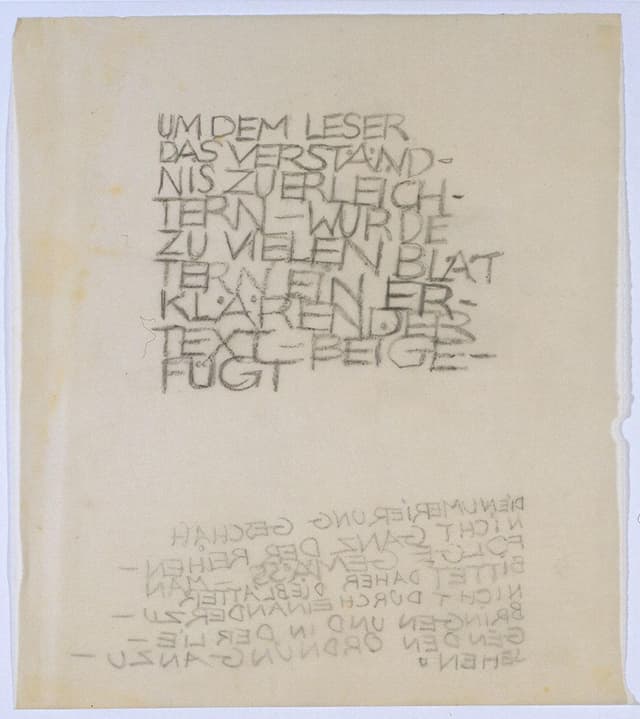 UM DEM LESER
DAS VERSTÄND-
NIS ZU ERLEICH-
TERN – WURDE
ZU VIELEN BLÄT
TERN EIN ER-
KLÄRENDER
TEXT – BEIGE-
FÜGT
DIE NUMERIERUNG GESCHAH
NICHT GANZ DER REIHEN –
FOLGE GEMÄSS – MAN
BITTET DAHER DIE BLÄTTER
NICHT DURCHEINANDER ZU –
BRINGEN UND IN DER LIE –
GENDEN ORDNUNG ANZU –
SEHEN!